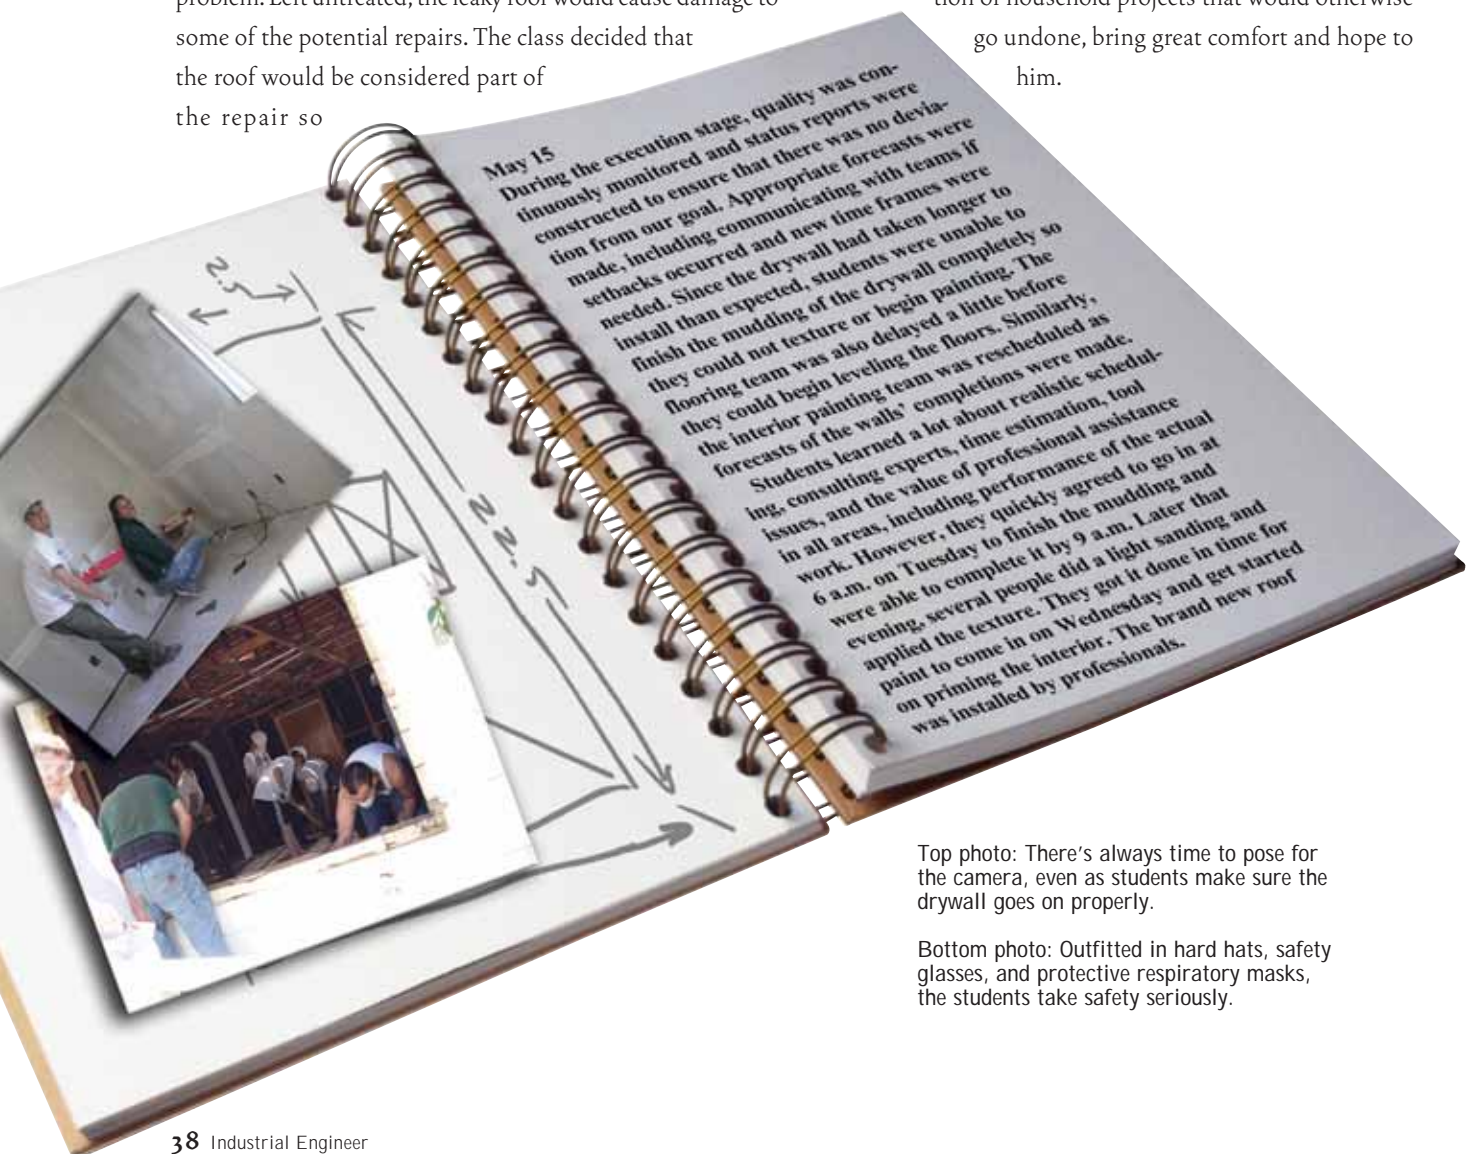 problem. Left untreated, the leaky roof would cause damage to
some of the potential repairs. The class decided that
the roof would be considered part of
the repair so
tion of household projects that would otherwise
go undone, bring great comfort and hope to
him.
May 15
During the execution stage, quality was con-
tinuously monitored and status reports were
constructed to ensure that there was no devia-
tion from our goal. Appropriate forecasts were
made, including communicating with teams if
setbacks occurred and new time frames were
needed. Since the drywall had taken longer to
install than expected, students were unable to
finish the mudding of the drywall completely so
they could not texture or begin painting. The
flooring team was also delayed a little before
they could begin leveling the floors. Similarly,
the interior painting team was rescheduled as
forecasts of the walls' completions were made.
Students learned a lot about realistic schedul-
ing, consulting experts, time estimation, tool
issues, and the value of professional assistance
in all areas, including performance of the actual
work. However, they quickly agreed to go in at
6 a.m. on Tuesday to finish the mudding and
were able to complete it by 9 a.m. Later that
evening, several people did a light sanding and
applied the texture. They got it done in time for
paint to come in on Wednesday and get started
on priming the interior. The brand new roof
was installed by professionals.
2.5
22.5
Top photo: There's always time to pose for
the camera, even as students make sure the
drywall goes on properly.
Bottom photo: Outfitted in hard hats, safety
glasses, and protective respiratory masks,
the students take safety seriously.
38 Industrial Engineer